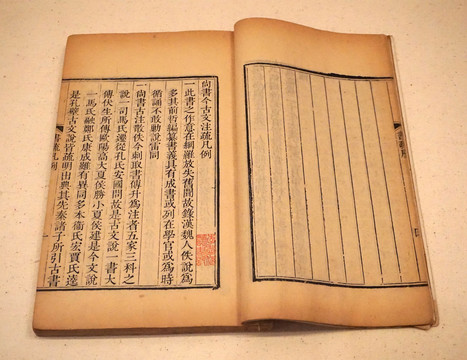 尚書今古文注疏凡例
一此書之作意在網羅放失舊聞故錄漢魏人佚說爲
多其前哲編纂書義具有成書或列在學官或爲時
循誦不敢勦說雷同
一尚書古注散佚今刺取書傳升爲注者五家三科之
說一司馬氏遷從孔氏安國問故是古文說一書大
傳伏生所傳歐陽高大夏侯勝小夏侯建是今文說
一馬氏融鄭氏康成雖有異同多本衞氏宏賈氏逵
是孔壁古文說皆疏明出典其先秦諸子所引古書
書疏凡例